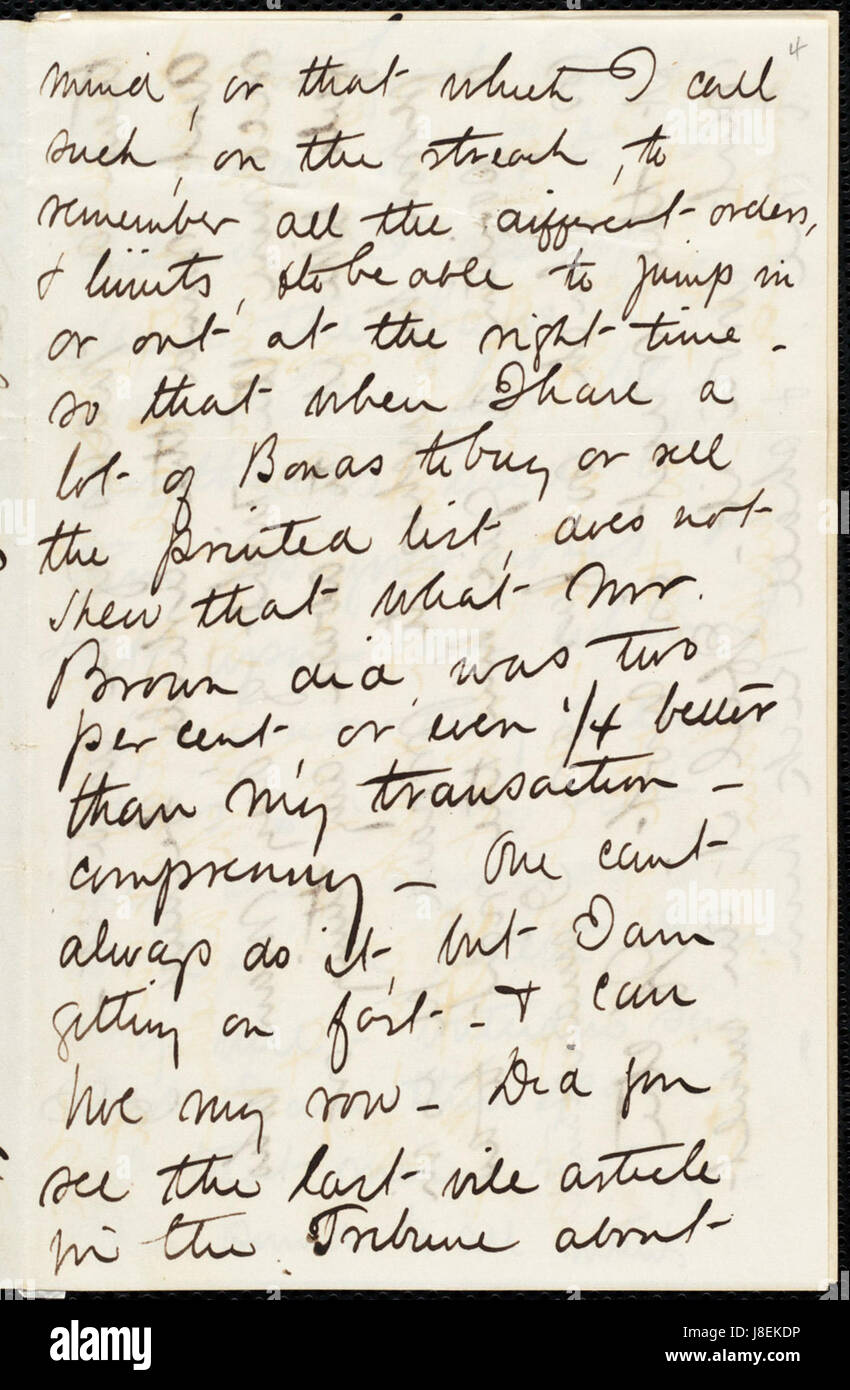 4
mind, or that which I call
such, on the streach, to
remember all the different orders,
& limits, & to be able to jump in
or out at the right time -
so that when I have a
lot of Bonds to buy or sell
the printed list, does not
shew that what Mr.
Brown did, was two
per cent, or even 1/4 better
than my transaction -
comprenny - One cant
always do it, but I am
getting on fast - & can
hoe my row - Did you
see the last vile article
in the Tribune about
alamy
alamy
Image ID: J8EKDP
www.alamy.com